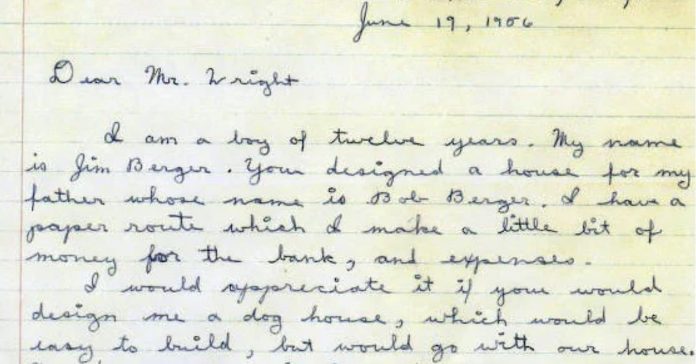 June 19, 1956
Dear Mr. Wright
I am a boy of twelve years. My name
is Jim Berger. You designed a house for my
father whose name is Bob Berger. I have a
paper route which I make a little bit of
money for the bank, and expenses.
I would appreciate it if you would
design me a dog house, which would be
easy to build, but would go with our house